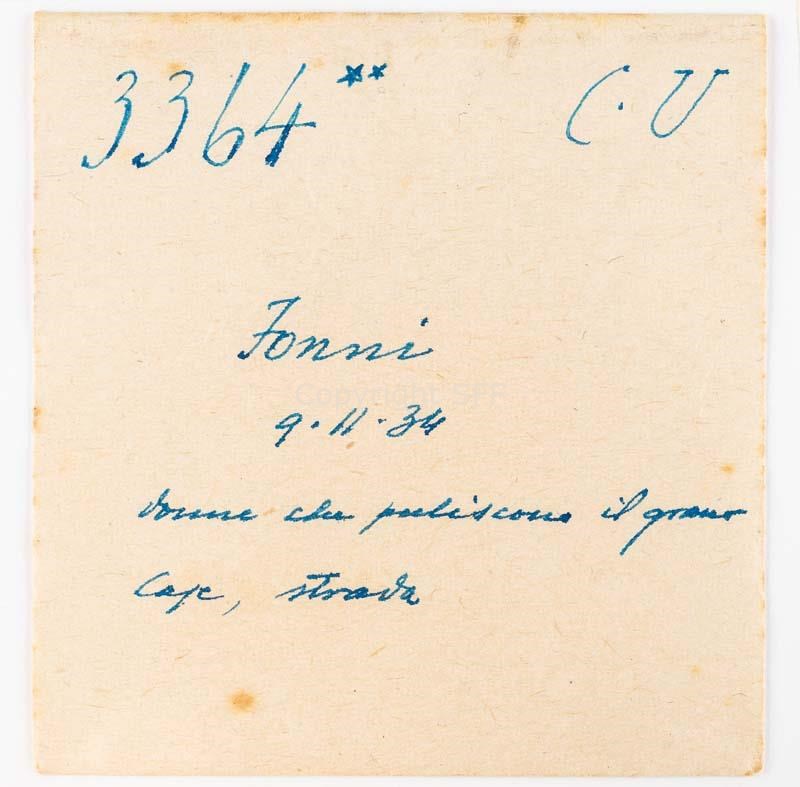 3364** C. U
Fonni
Copyright SFF
9.11.34
donne che puliscono il grano
Case, strada